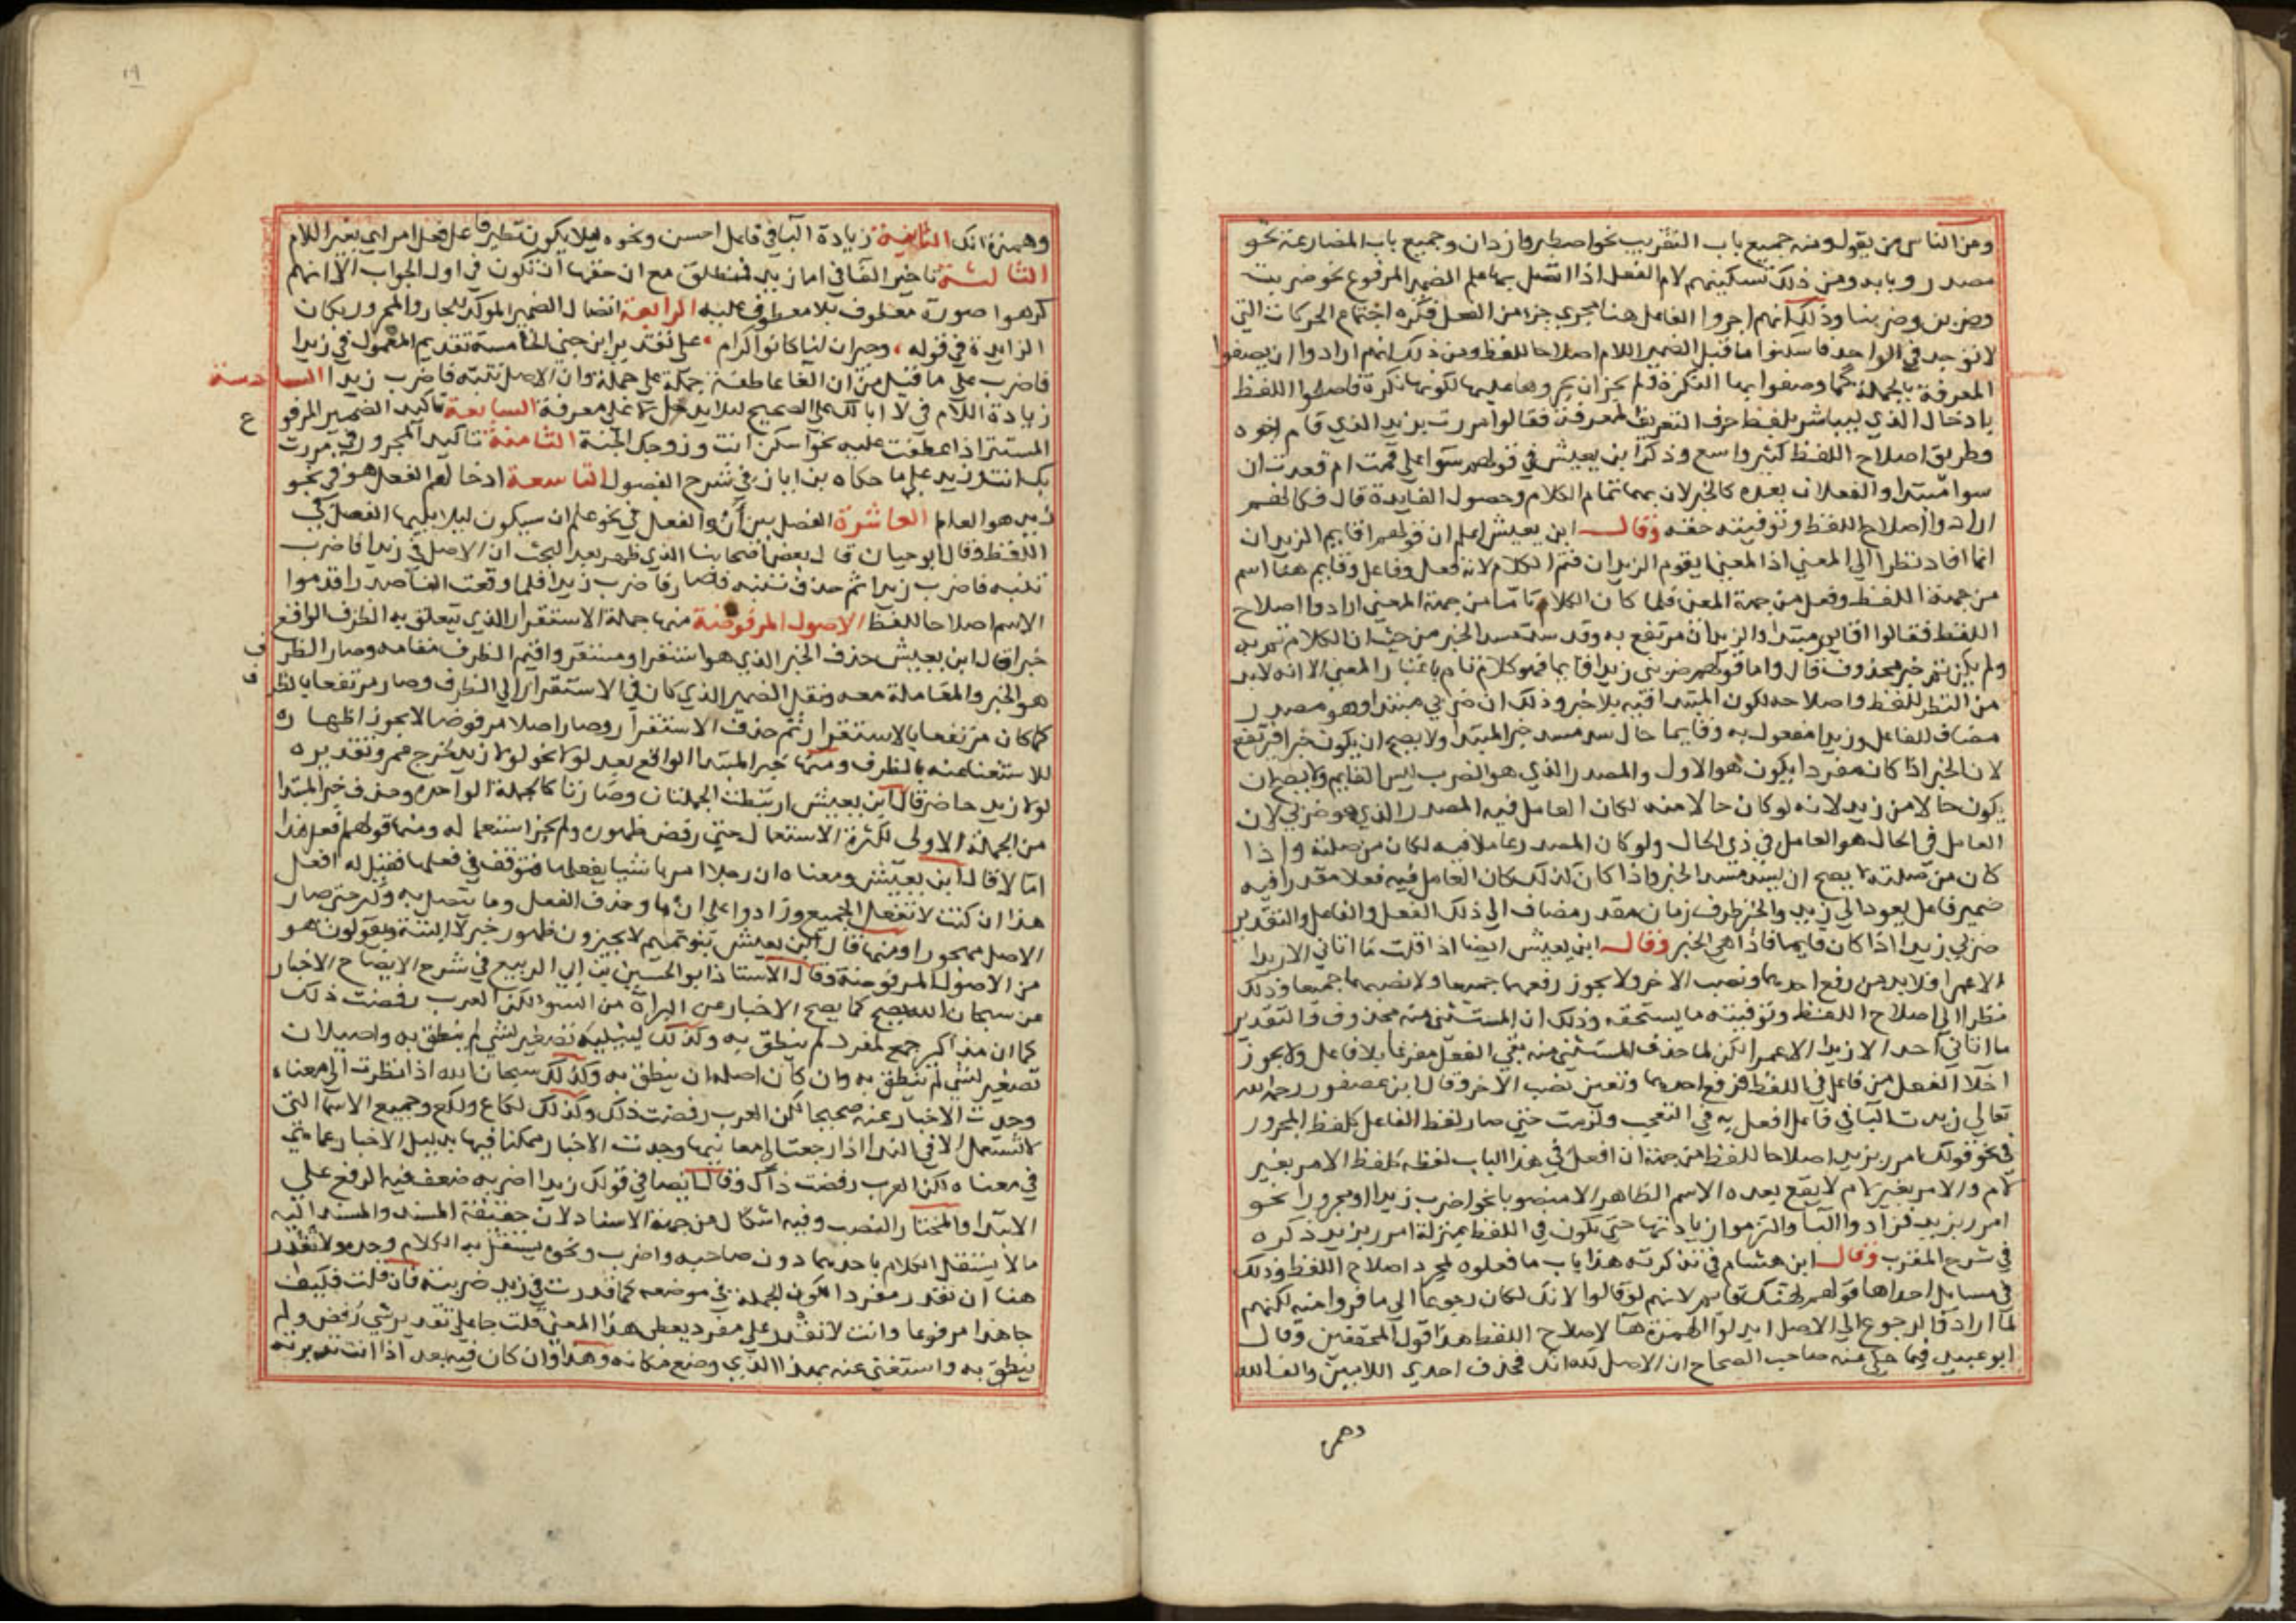 ومن الناس من يقول ومنه جميع باب التقريب نحو اصطبر وازدان وجميع باب المضارعة نحو
مصدر وبابه ومن ذلك تسكينهم لام الفعل اذا اتصل بها علم الضمير المرفوع نحو ضربت
وضربن وضربنا وذلك انهم اجروا الفاعل هنا مجري جزء من الفعل فكره اجتماع الحركات التي
لا توجد في الواحد فاسكنوا ما قبل الضمير اللام اصلاحا للفظ ومن ذلك انهم ارادوا ان يصفوا
المعرفة بالجملة كما وصفوا بها النكرة ولم يجز ان يجروها عليها لكونها نكرة فاصلحوا اللفظ
بادخال الذي ليباشر بلفظ حرف التعريف المعرفة فقالوا مررت بزيد الذي قام اخوه
وطريق اصلاح اللفظ كثير واسع وذكر ابن يعيش في قولهم سوا علي قمت ام قعدت ان
سوا مبتدا والفعلان بعده كالخبر لان بهما تمام الكلام وحصول الفايدة قال فكانهم
ارادوا اصلاح اللفظ وتوفيته حقه وقال ابن يعيش اعلم ان قولهم اقايم الزيدان
انما افاد نظرا الي المعني اذ المعني ايقوم الزيدان فتم الكلام لانه فعل وفاعل وقايم هنا اسم
من جهة اللفظ وفعل من جهة المعني فلما كان الكلام تاما من جهة المعني ارادوا اصلاح
اللفظ فقالوا اقايم مبتدا والزيدان مرتفع به وقد سد مسد الخبر من حيث ان الكلام تم به
ولم يكن ثم خبر محذوف قال واما قولهم ضربي زيدا قايما فهو كلام تام باعتبار المعني الا انه لابد
من النظر للفظ واصلاحه لكون المبتدا فيه بلا خبر وذلك ان ضربي مبتدا وهو مصدر
مضاف للفاعل وزيدا مفعول به وقايما حال سد مسد خبر المبتدا ولا يصح ان يكون خبرا فيرتفع
لان الخبر اذا كان مفردا يكون هو الاول والمصدر الذي هو الضرب ليس القايم ولا يصح ان
يكون حالا من زيد لانه لو كان حالا منه لكان العامل فيه المصدر الذي هو ضربي لان
العامل في الحال هو العامل في ذي الحال ولو كان المصدر عاملا فيه لكان من صلته واذا
كان من صلته لا يصح ان يسد مسد الخبر واذا كان كذلك كان العامل فيه فعلا مقدرا فيه
ضمير فاعل يعود الي زيد والخبر ظرف زمان مقدر مضاف الي ذلك الفعل والفاعل والتقدير
ضربي زيدا اذا كان قايما فاذا هي الخبر وقال ابن يعيش ايضا اذا قلت ما اتاني الا زيدا
الا عمرا فلابد من رفع احدهما ونصب الاخر ولا يجوز رفعهما جميعا ولا نصبهما جميعا وذلك
نظرا الي اصلاح اللفظ وتوفيته ما يستحقه وذلك ان المستثني منه محذوف والتقدير
ما اتاني احد الا زيدا الا عمرا لكن لما حذف المستثني منه بقي الفعل مفرغا بلا فاعل ولا يجوز
اخلا الفعل من فاعل في اللفظ فرفع احدهما وتعين نصب الاخر وقال ابن عصفور رحمه الله
تعالي زيدت البا في فاعل افعل به في التعجب ولزمت حتي صار لفظ الفاعل كلفظ المجرور
في نحو قولك امرر بزيد اصلاحا للفظ من جهة ان افعل في هذا الباب لفظه كلفظ الامر بغير
لام والامر بغير لام لا يقع بعده الاسم الظاهر الا منصوبا نحو اضرب زيدا او مجرورا نحو
امرر بزيد فزادوا البا والتزموا زيادتها حتي يكون في اللفظ بمنزلة امرر بزيد ذكره
في شرح المقرب وقال ابن هشام في تذكرته هذا باب ما فعلوه لمجرد اصلاح اللفظ وذلك
في مسايل احداها قولهم لهنك قايم لانهم لو قالوا لانك لكان رجوعا الي ما فروا منه لكنهم
لما ارادوا الرجوع الي الاصل ابدلوا الهمزة ها لاصلاح اللفظ هذا قول المحققين وقال
ابو عبيد فيما حكي عنه صاحب الصحاح ان الاصل لله انك فحذف احدي اللامين والف الله
وهمزة
١٩
وهمزة انك الثانية زيادة البا في فاعل احسن ونحوه ليلا يكون نظير فاعل فعل امر اي بغير اللام
الثالثة تاخير الفا في اما زيد فمنطلق مع ان حقها ان تكون في اول الجواب الا انهم
كرهوا صورة معطوف بلا معطوف عليه الرابعة اتصال الضمير المؤكد للجار والمجرور بكان
الزايدة في قوله وجيران لنا كانوا كرام علي تقدير ابن جني الخامسة تقديم المعمول في زيدا
فاضرب علي ما قيل من ان الفا عاطفة جملة علي جملة وان الاصل تنبه فاضرب زيدا السادسة
زيادة اللام في لا ابا لك علي الصحيح ليلا يدخل لا علي معرفة السابعة تاكيد الضمير المرفوع
المستتر اذا عطفت عليه نحو اسكن انت وزوجك الجنة الثامنة تاكيد المجرور في مررت
بك انت وزيد علي ما حكاه بن اباز في شرح الفصول التاسعة ادخالهم الفعل هو في نحو
زيد هو العالم العاشرة الفصل بين أن والفعل في نحو علم ان سيكون ليلا يليها الفعل في
اللفظ وقال ابو حيان قال بعض اصحابنا الذي ظهر بعد البحث ان الاصل في زيدا فاضرب
تنبه فاضرب زيدا ثم حذف تنبه فصار فاضرب زيدا فلما وقعت الفا صدرا قدموا
الاسم اصلاحا للفظ الاصول المرفوضة منها جملة الاستقرار الذي يتعلق به الظرف الواقع
خبرا قال ابن يعيش حذف الخبر الذي هو استقر او مستقر واقيم الظرف مقامه وصار الظرف
هو الخبر والمعاملة معه ونقل الضمير الذي كان في الاستقرار الي الظرف وصار مرتفعا بالظرف
كما كان مرتفعا بالاستقرار ثم حذف الاستقرار وصار اصلا مرفوضا لا يجوز اظهاره
للاستغنا عنه بالظرف ومنها خبر المبتدا الواقع بعد لولا نحو لولا زيد لخرج عمرو وتقديره
لولا زيد حاضر قال ابن يعيش ارتبطت الجملتان وصارتا كالجملة الواحدة وحذف خبر المبتدا
من الجملة الاولي لكثرة الاستعمال حتي رفض ظهوره ولم يجز استعماله ومنها قولهم افعل هذا
امالا قال ابن يعيش ومعناه ان رجلا امر باشيا يفعلها فتوقف في فعلها فقيل له افعل
هذا ان كنت لا تفعل الجميع وزادوا علي ان ما وحذف الفعل وما يتصل به وكثر حتي صار
الاصل مهجورا ومنها قال ابن يعيش بنو تميم لا يجيزون ظهور خبر لا البتة ويقولون هو
من الاصول المرفوضة وقال الاستاذ ابو الحسين بن ابي الربيع في شرح الايضاح الاخبار
عن سبحان الله يصح كما يصح الاخبار عن البراة من السو لكن العرب رفضت ذلك
كما ان مذاكير جمع لمفرد لم ينطق به وكذلك لييلية تصغير لشي لم ينطق به واصيلان
تصغير لشي لم ينطق به وان كان اصله ان ينطق به وكذلك سبحان الله اذا نظرت الي معناه
وجدت الاخبار عنه صحيحا لكن العرب رفضت ذلك وكذلك لكاع ولكع وجميع الاسما التي
لا تستعمل الا في الندا اذا رجعت الي معانيها وجدت الاخبار ممكنا فيها بدليل الاخبار عما هي
في معناه لكن العرب رفضت ذلك وقال ايضا في قولك زيدا اضربه ضعف فيه الرفع علي
الابتدا والمختار النصب وفيه اشكال من جهة الاسناد لان حقيقة المسند والمسند اليه
ما لا يستقل الكلام باحدهما دون صاحبه واضرب ونحوه يستقل به الكلام وحده ولا تقدر
هنا ان تقدر مفردا تكون الجملة في موضعه كما قدرت في زيد ضربته فان قلت فكيف
جا هذا مرفوعا وانت لا تقدر علي مفرد يعطي هذا المعني قلت جا علي تقدير شي رفض ولم
ينطق به واستغني عنه بهذا الذي وضع مكانه وهذا وان كان فيه بعد اذا انت تدبرته